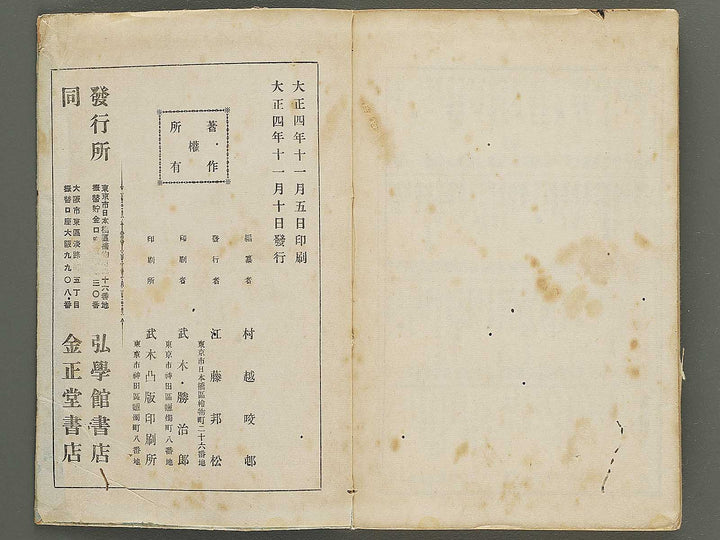 大正四年十一月五日印刷
大正四年十一月十日發行
著・作
權
所有
編纂者 村越咬邨
東京市日本橋區檜物町二十六番地
發行者 江藤邦松
東京市神田區鎌倉町八番地
印刷者 武木・勝治郎
東京市神田區鎌倉町八番地
印刷所 武木凸版印刷所
東京市日本橋區檜物 二十六番地
發行所 弘學館書店
振替貯金口 三〇番
大阪市東區淡路 五丁目
同 金正堂書店
振替口座大阪九九〇八番